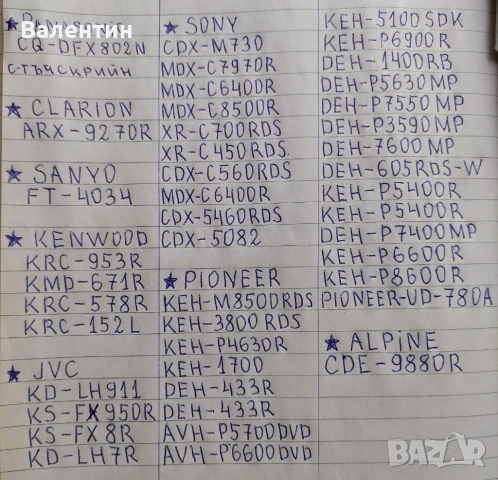 Валентин
★ Panasonic
CQ-DFX802N
с-тъчскрийн
★ CLARION
ARX-9270R
★ SANYO
FT-4034
★ KENWOOD
KRC-953R
KMD-671R
KRC-578R
KRC-152L
★ JVC
KD-LH911
KS-FX950R
KS-FX8R
KD-LH7R
★ SONY
CDX-M730
MDX-C7970R
MDX-C6400R
MDX-C8500R
XR-C700RDS
XR-C450RDS
CDX-C560RDS
MDX-C6400R
CDX-5460RDS
CDX-5082
★ PIONEER
KEH-M8500RDS
KEH-3800RDS
KEH-P4630R
KEH-1700
DEH-433R
DEH-433R
AVH-P5700DVD
AVH-P6600DVD
KEH-5100SDK
KEH-P6900R
DEH-1400RB
DEH-P5630MP
DEH-P7550MP
DEH-P3590MP
DEH-7600MP
DEH-605RDS-W
KEH-P5400R
KEH-P5400R
DEH-P7400MP
KEH-P6600R
KEH-P8600R
PIONEER-UD-780A
★ ALPiNE
CDE-9880R
BAZAR